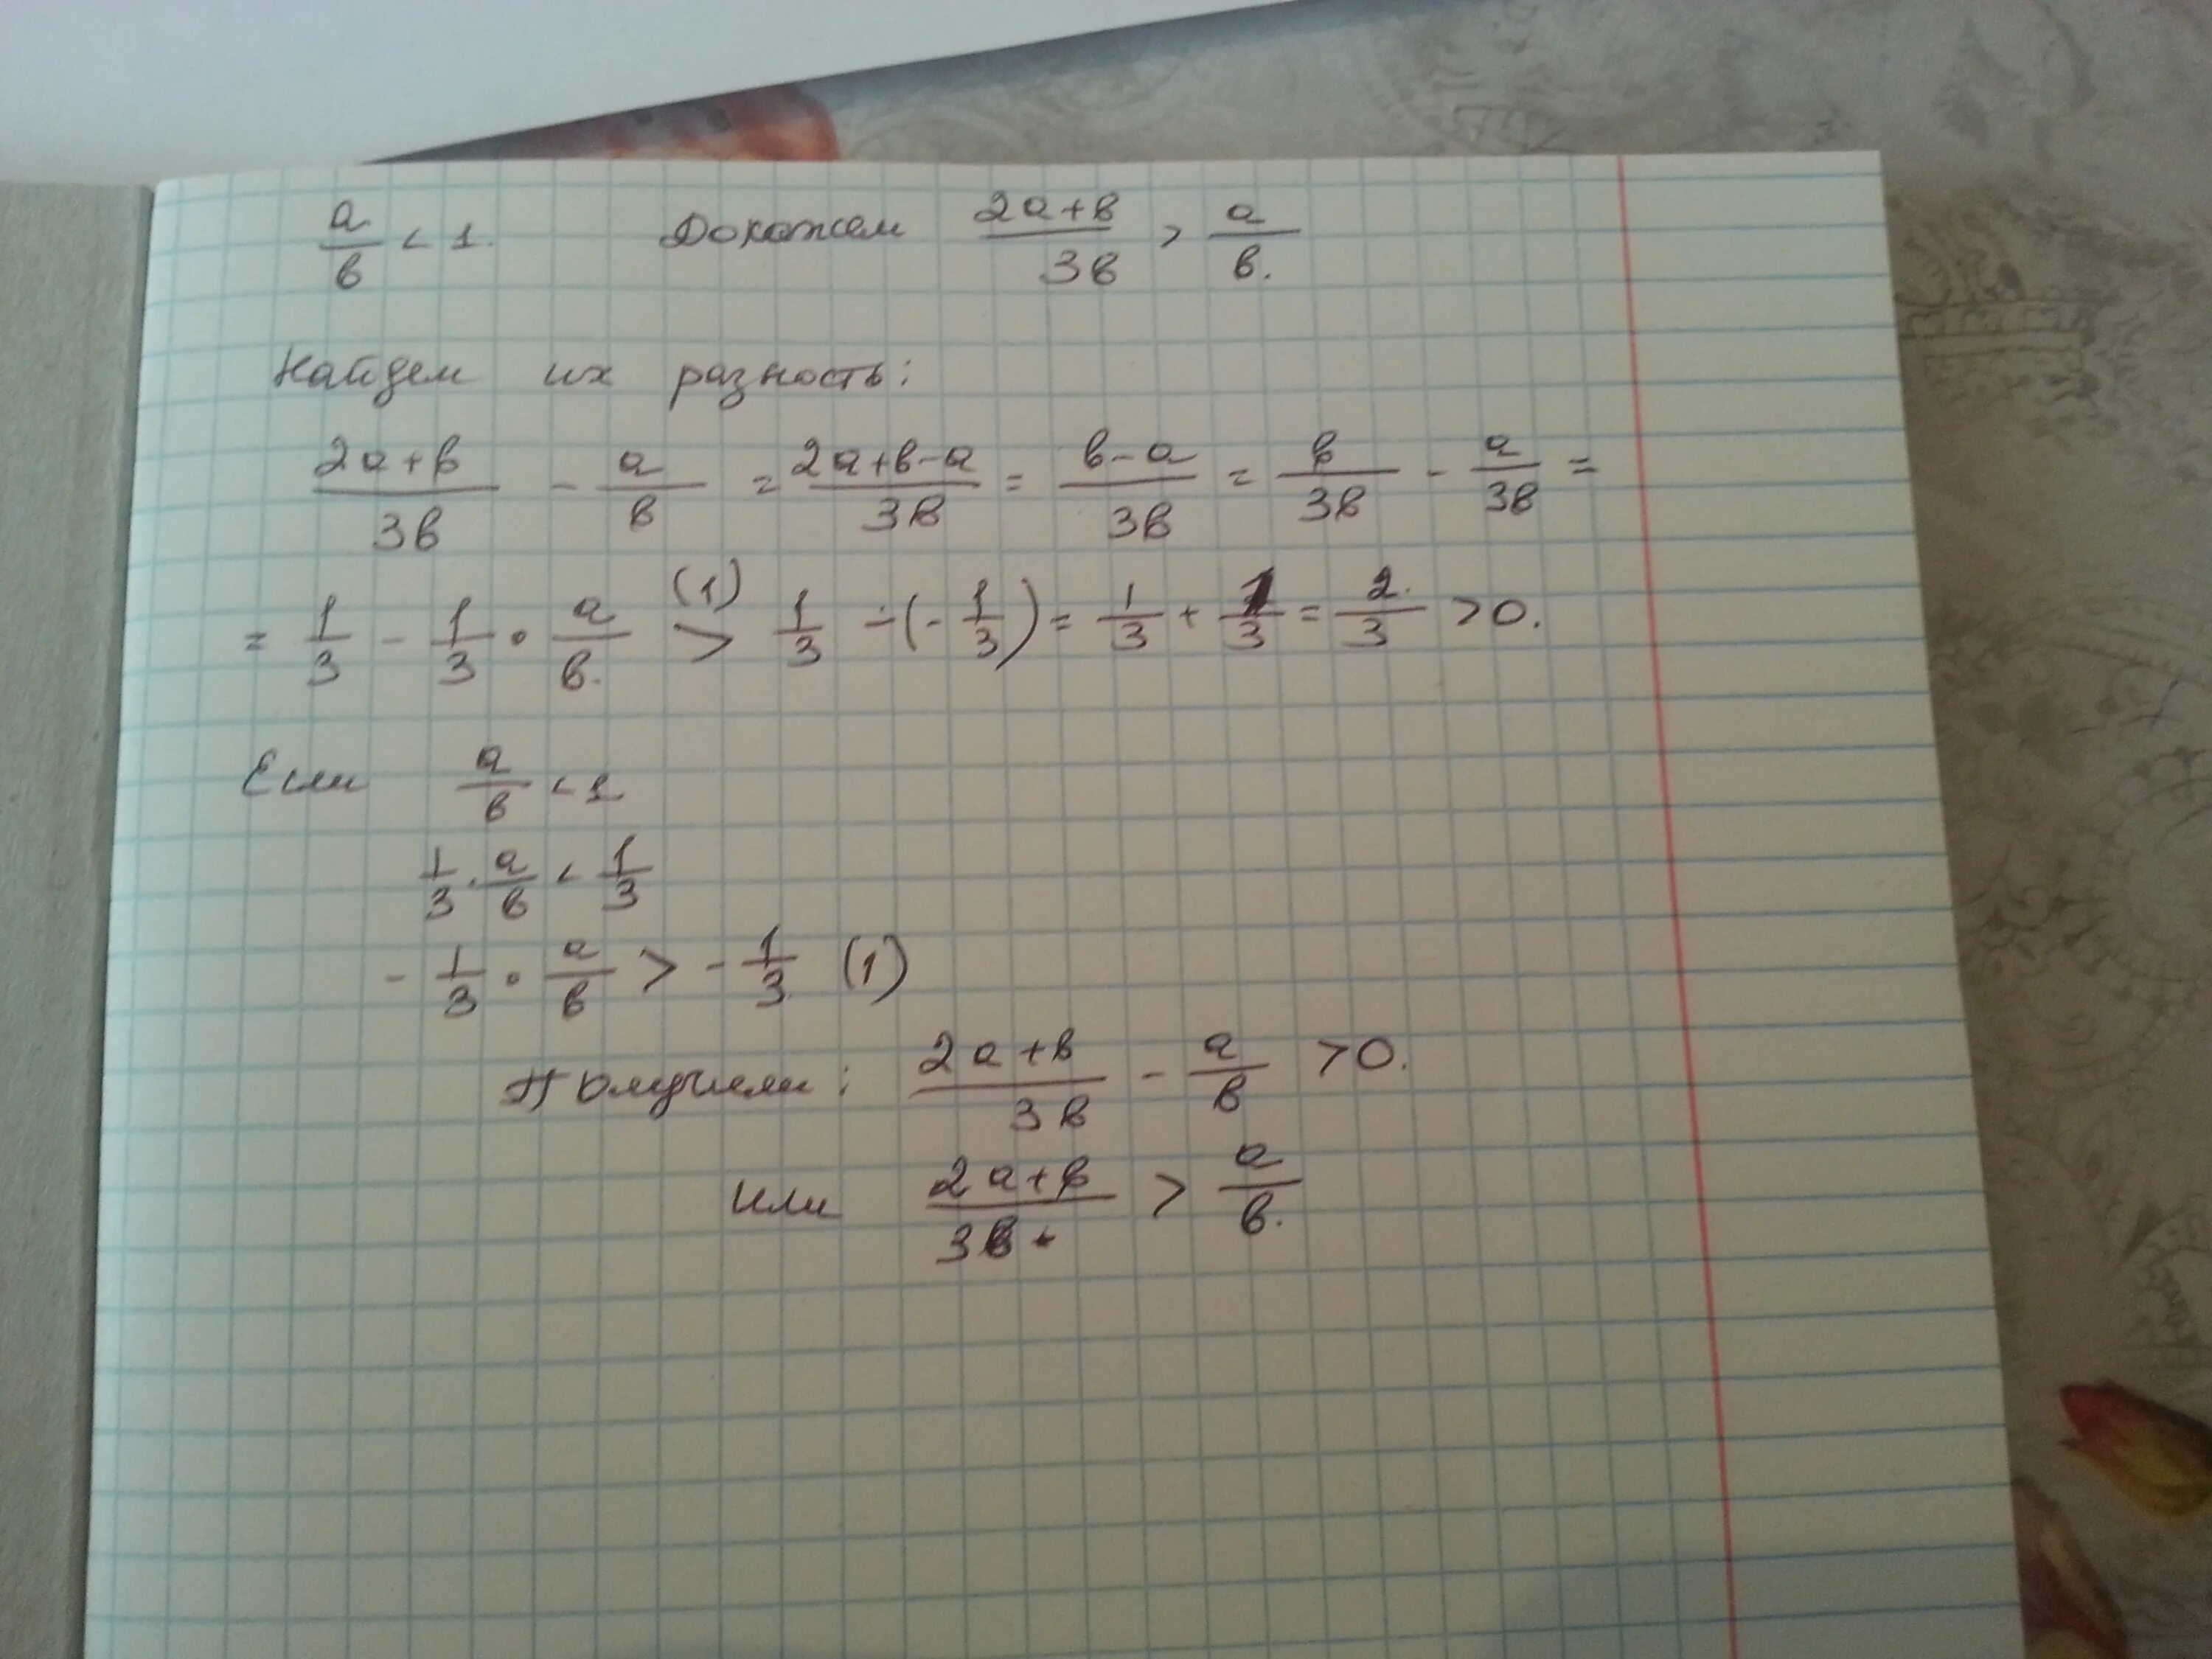 a/в < 1. Докажем (2a+в)/3в > a/в.
Найдем их разность:
(2a+в)/3в - a/в = (2a+в-a)/3в = (в-a)/3в = в/3в - a/3в =
= 1/3 - 1/3 • a/в. >(1) 1/3 - (-1/3) = 1/3 + 1/3 = 2/3 > 0.
Если a/в < 1
1/3 · a/в < 1/3
- 1/3 • a/в > - 1/3 (1)
Получили: (2a+в)/3в - a/в > 0.
Или (2a+в)/3в > a/в.